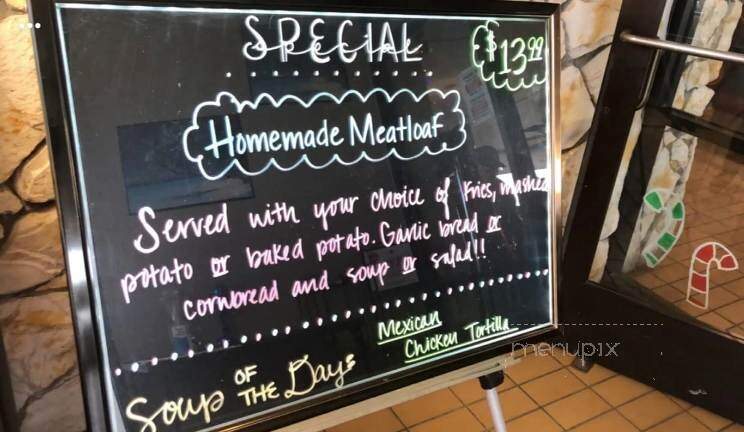 SPECIAL
special
$13.99
Homemade Meatloaf
Served with your choice of Fries, mashed
potato or baked potato. Garlic bread or
cornbread and soup or salad!!
Mexican
Chicken Tortilla
Soup OF THE Day:
menupix